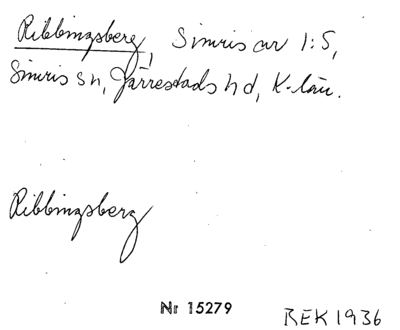 Ribbingsberg, Simris av 1:5,
Simris sn, Järrestads hd, K-län.
Ribbingsberg
Nr 15279
REK 1936